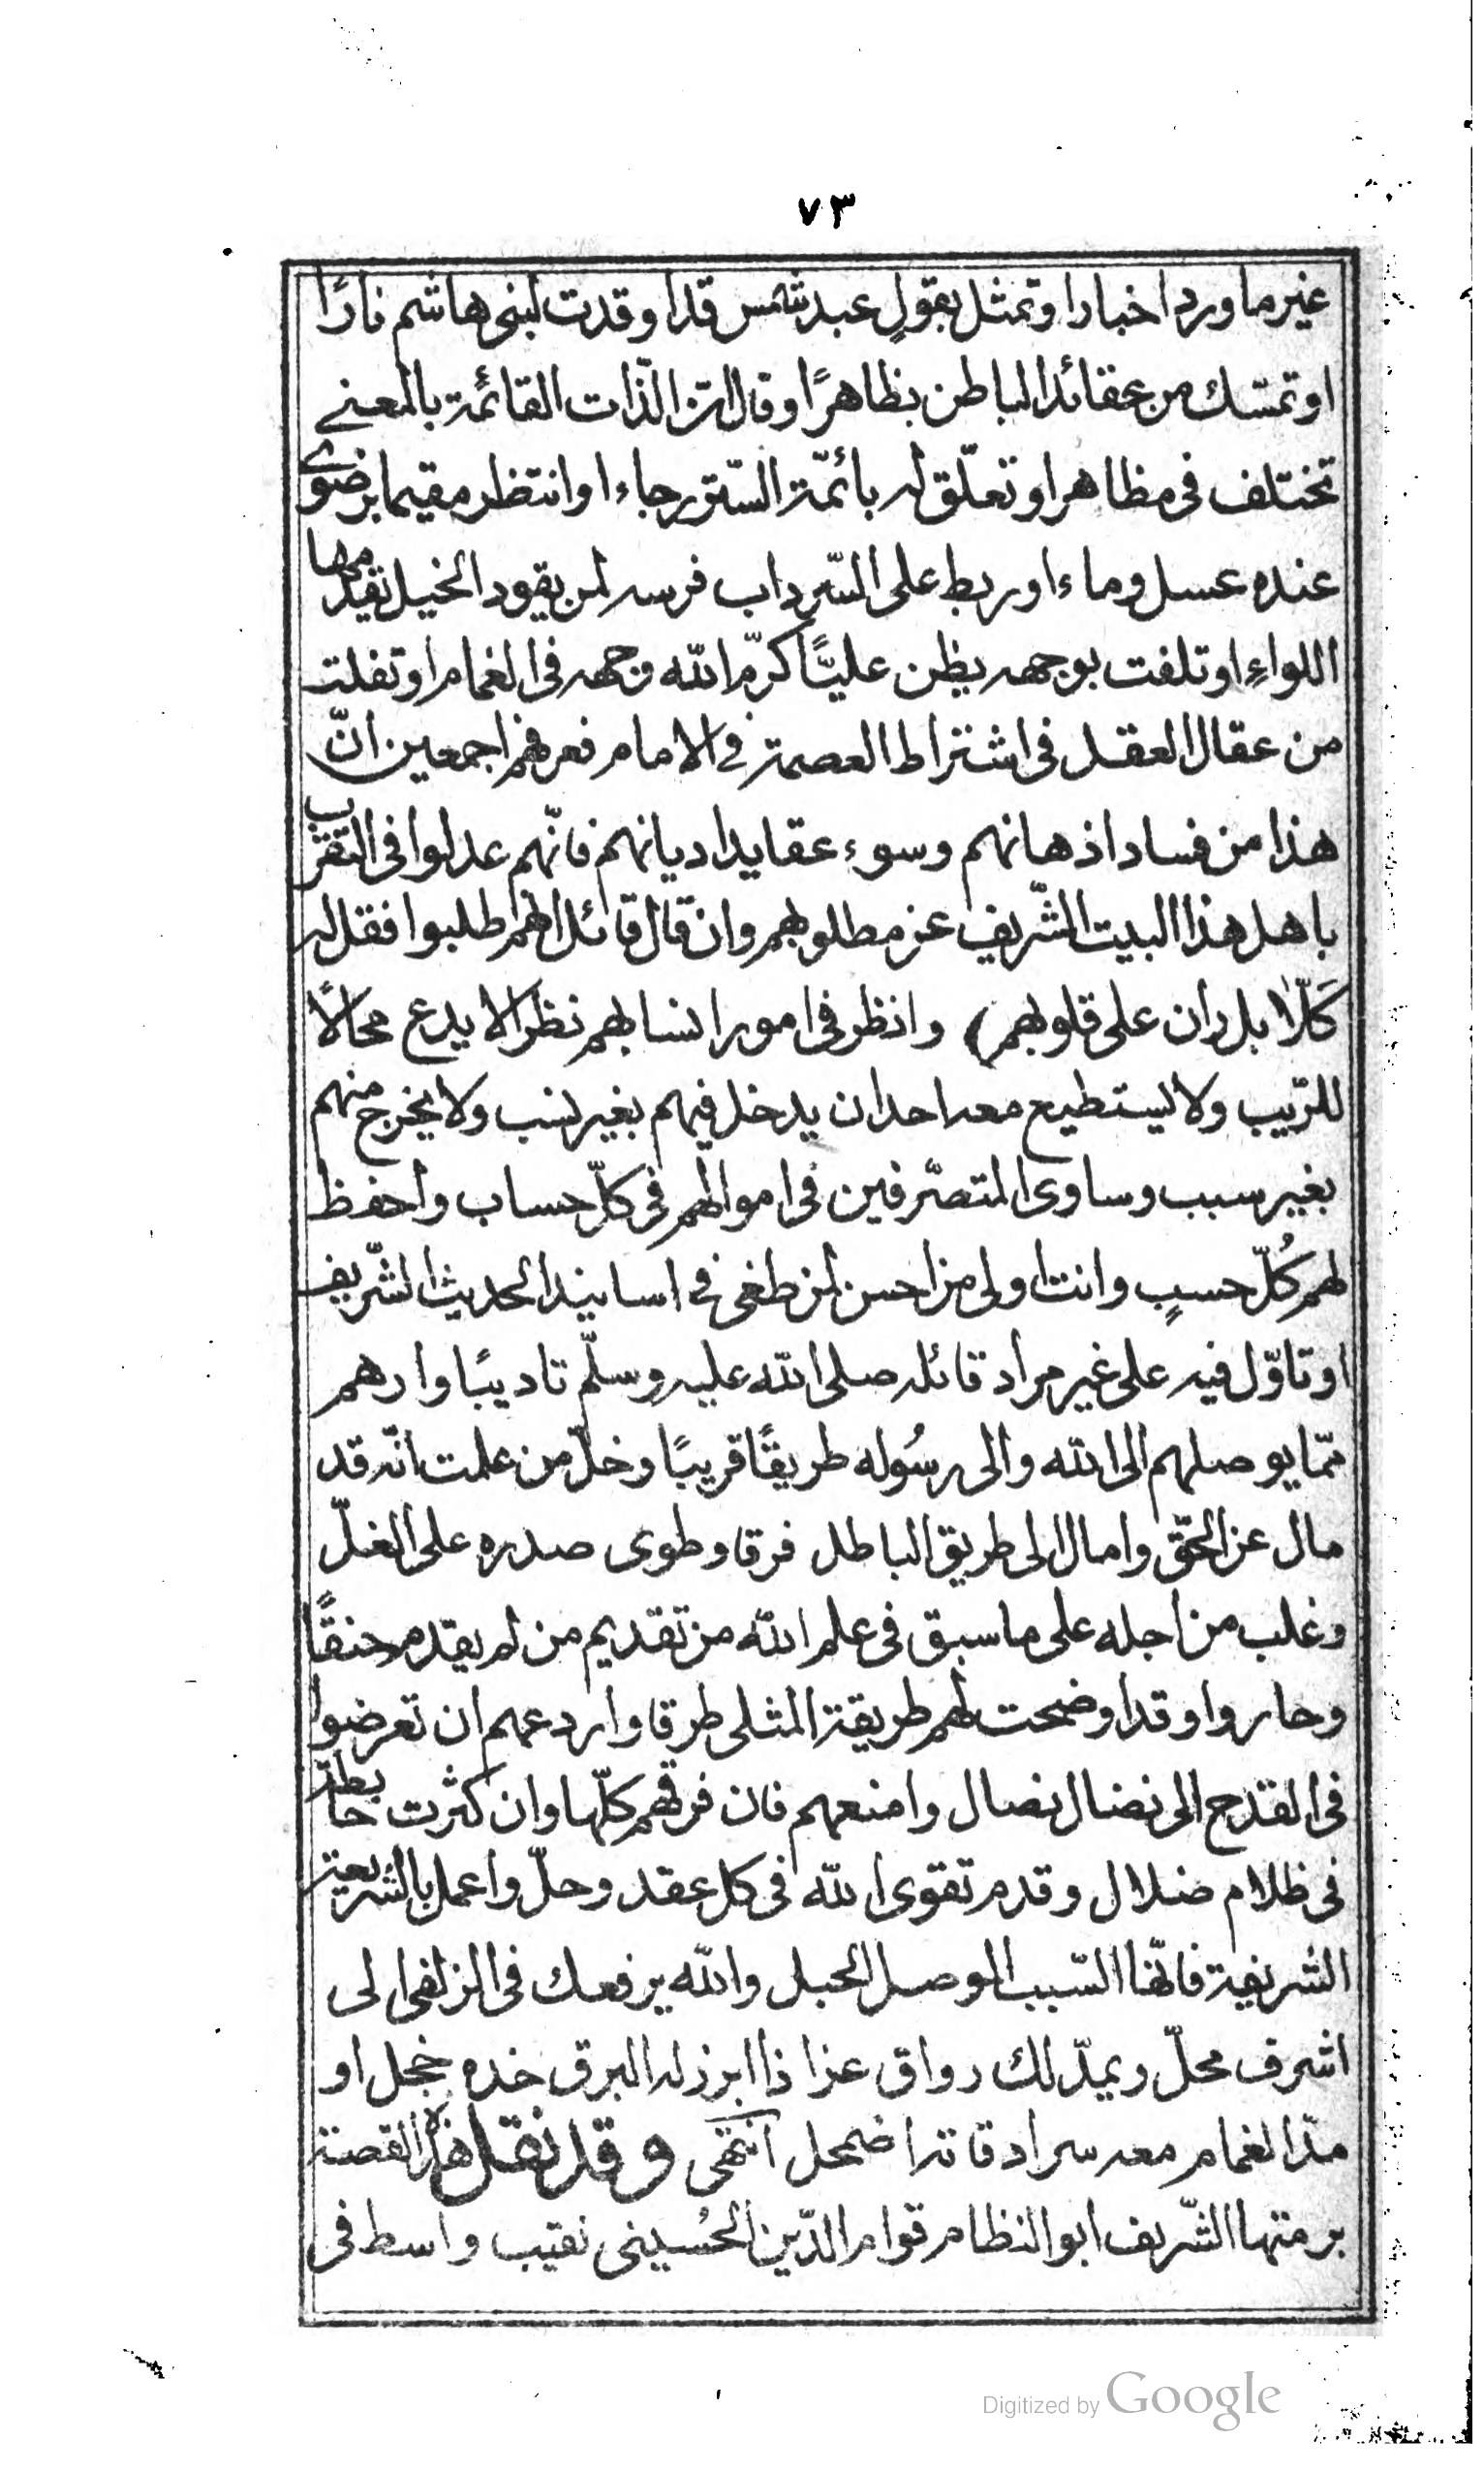 ٧٣
غير ما ورد اخبارا وتمثل بقولٍ عبد شمس قد اوقدت لبنى هاشم نارًا
او تمسّك من عقائد الباطن بظاهرًا وقال انّ الذّات القائمة بالمعنے
تختلف فى مظاهر او تعلّق له بائمّة السّتر رجاء او انتظر مقيما برضوے
عنده عسل وماء او ربط على السّرداب فرسه لمن يقود الخيل يقدمها
اللواءِ او تلفت بوجهه يظن عليًّا كرّم الله وجهه فى الغمام او تفلت
من عقال العقل فى اشتراط العصمة فے الامام فعرفهم اجمعين انّ
هذا من فساد اذهانهم وسوء عقايد اديانهم فانّهم عدلوا فى التقرّب
باهل هذا البيت الشّريف عن مطلوبهم وان قال قائل انهم طلبوا فقل له
كَلّا بل ران على قلوبهم) وانظر فى امور انسابهم نظرا لا يدع مجالًا
للرّيب ولا يستطيع معه احد ان يدخل فيهم بغير نسب ولا يخرج منهم
بغير سبب وساوى المتصرّفين فى اموالهم فى كلّ حساب واحفظ
لهم كُلّ حسبٍ وانت اولى من احسن لمن طغى فے اسانيد الحديث الشّريف
او تاوّل فيه على غير مراد قائله صلى الله عليه وسلّم تاديبًا وارهم
ممّا يوصلهم الى الله والى رسُوله طريقًا قريبًا وخلّ من علمت انّه قد
مال عن الحّق وامال الى طريق الباطل فرقا وطوى صدره على الغلّ
وغلب من اجله على ما سبق فى علم الله من تقديم من لم يقدم حنقًا
وحاروا وقد اوضحت لهم طريقة المثلى طرقا واردعهم ان تعرضوا
فى القدح الى نضال نصال وامنعهم فان فرقهم كلّها وان كثرت حابطة
فى ظلام ضلال وقدم تقوى الله فى كل عقد وحلّ واعمل بالشريعة
الشريفة فانّها السّبب الموصل الحبل والله يرفعك فى الزلفى الى
اشرف محلّ ويمدّ لك رواق عز اذا ابرز له البرق خده خجل او
مدّ الغمام معه سرادقاته اضمحل انتهى وقد نقل هذا القصة
برمتها الشّريف ابو النظام قوام الدّين الحُسينى نقيب واسط فى
Digitized by Google